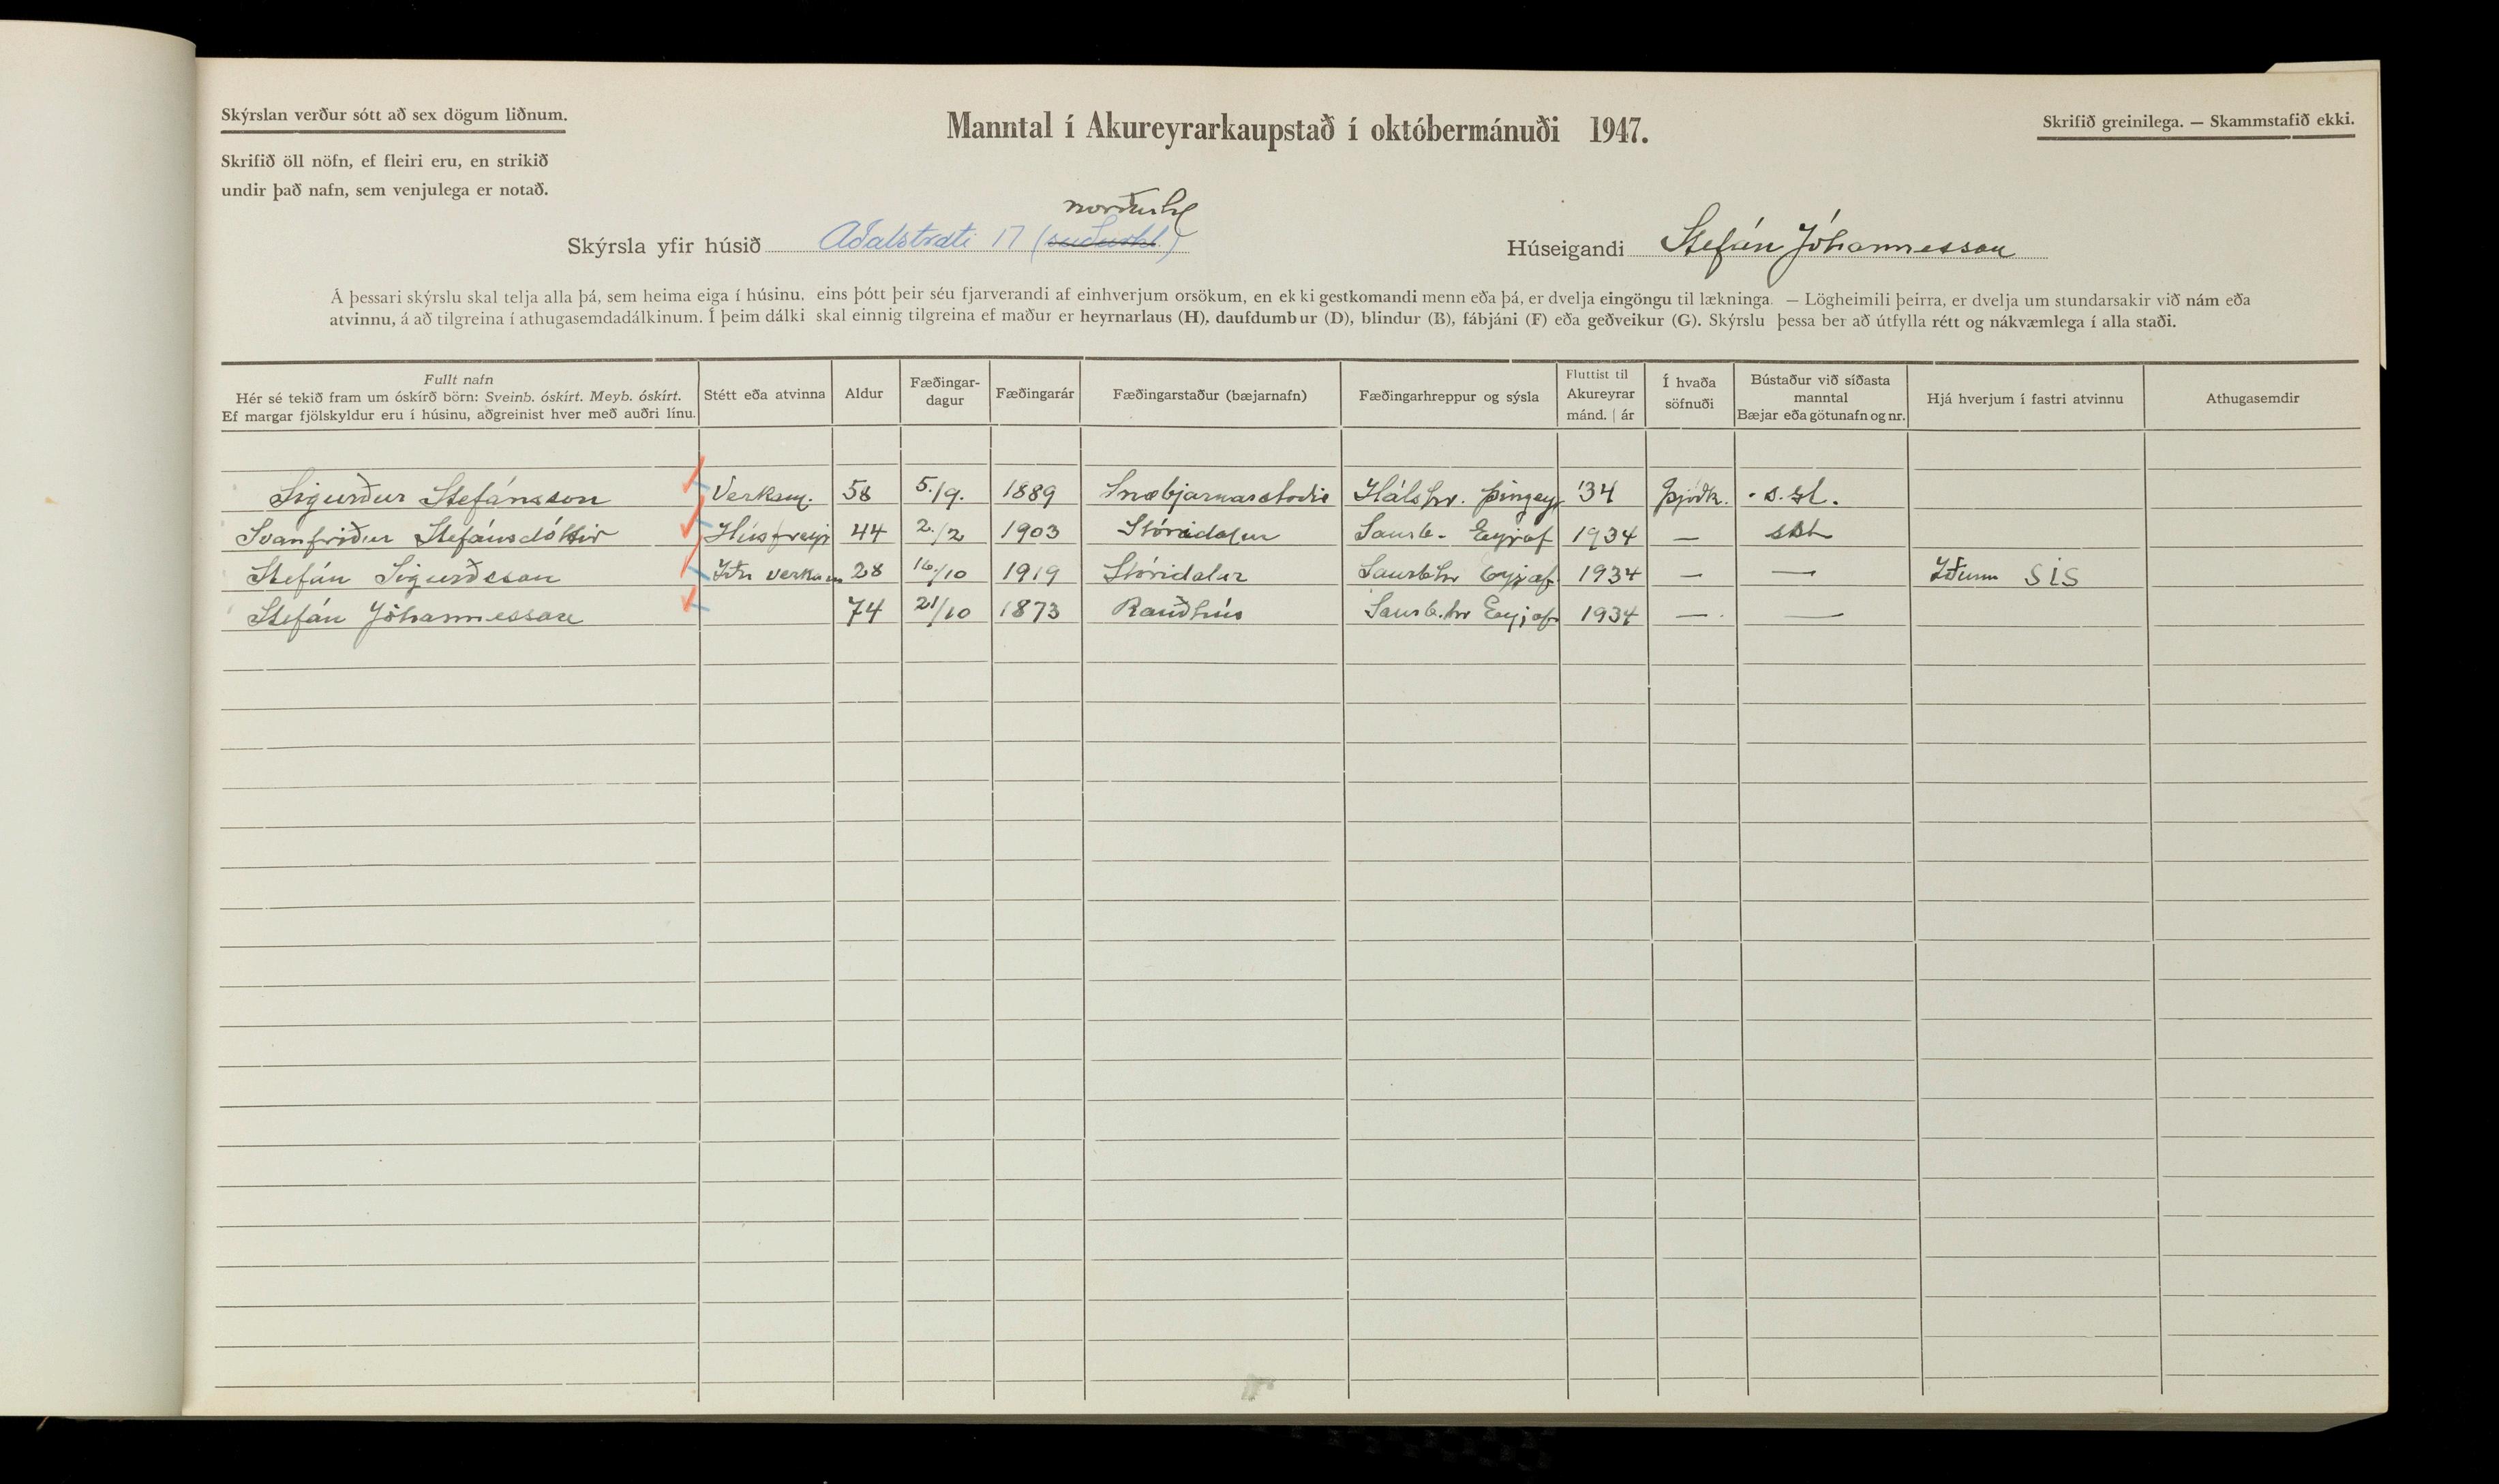 Skýrslan verður sótt að sex dögum liðnum.
Skrifið öll nöfn, ef fleiri eru, en strikið
undir það nafn, sem venjulega er notað.
Manntal í Akureyrarkaupstað í októbermánuði 1947.
Skrifið greinilega. — Skammstafið ekki.
norðurhl
Skýrsla yfir húsið Aðalstræti 17 (suðurhl)
Húseigandi Stefán Jóhannesson
Á þessari skýrslu skal telja alla þá, sem heima eiga í húsinu, eins þótt þeir séu fjarverandi af einhverjum orsökum, en ekki gestkomandi menn eða þá, er dvelja eingöngu til lækninga. — Lögheimili þeirra, er dvelja um stundarsakir við nám eða
atvinnu, á að tilgreina í athugasemdadálkinum. Í þeim dálki skal einnig tilgreina ef maður er heyrnarlaus (H), daufdumbur (D), blindur (B), fábjáni (F) eða geðveikur (G). Skýrslu þessa ber að útfylla rétt og nákvæmlega í alla staði.
Fullt nafn
Hér sé tekið fram um óskírð börn: Sveinb. óskírt. Meyb. óskírt.
Ef margar fjölskyldur eru í húsinu, aðgreinist hver með auðri línu.
Stétt eða atvinna
Aldur
Fæðingar-
dagur
Fæðingarár
Fæðingarstaður (bæjarnafn)
Fæðingarhreppur og sýsla
Fluttist til
Akureyrar
mánd. | ár
Í hvaða
söfnuði
Bústaður við síðasta
manntal
Bæjar eða götunafn og nr.
Hjá hverjum í fastri atvinnu
Athugasemdir
Sigurður Stefánsson Verkam. 58 5./9. 1889 Snæbjarnarstaðir Hálshr. Þingey '34 Þjóðk. s.st.
Svanfríður Stefánsdóttir Húsfreyj 44 2./2 1903 Stóridalur Saurb. Eyjaf 1934 — sst
Stefán Sigurðsson Iðn verkam 28 16/10 1919 Stóridalur Saurbhr Eyjaf 1934 — — Iðunn SÍS
Stefán Jóhannesson 74 21/10 1873 Rauðhús Saurb.hr Eyjaf 1934 — —